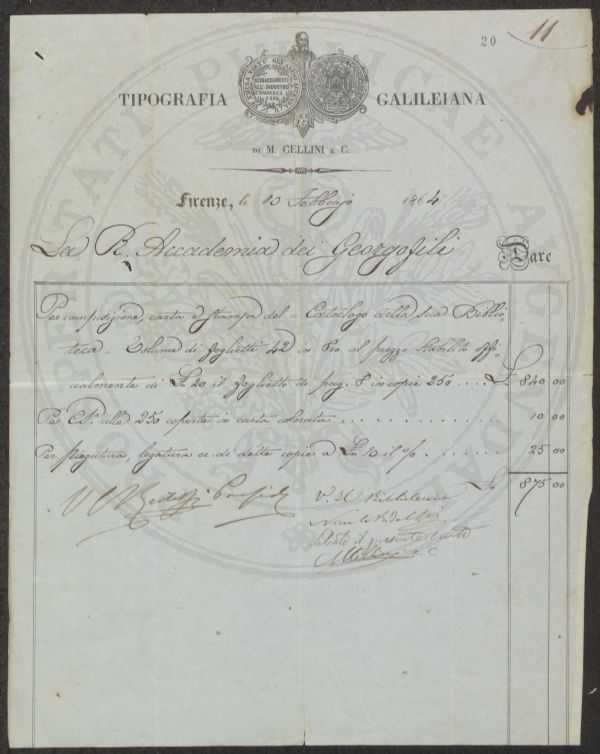 20 11
TIPOGRAFIA GALILEIANA
DI M. CELLINI E C.
Firenze, li 10 Febbrajo 1864
La R. Accademia dei Georgofili Dare
Per composizione, carta e stampa del Catalogo della sua Biblio-
teca - Volume di foglietti 42 in 8vo al prezzo stabilito offi-
cialmente di Ln 20 il foglietto di pag. 8 in copie 250 .... L. 840 00
Per C.a alle 250 coperte in carta colorata .............. 10 00
Per piegatura, legatura ec. di dette copie a Ln 10 il % ....... 25 00
Ln 875 00
V. Il Bibliotecario
Saldato il presente conto